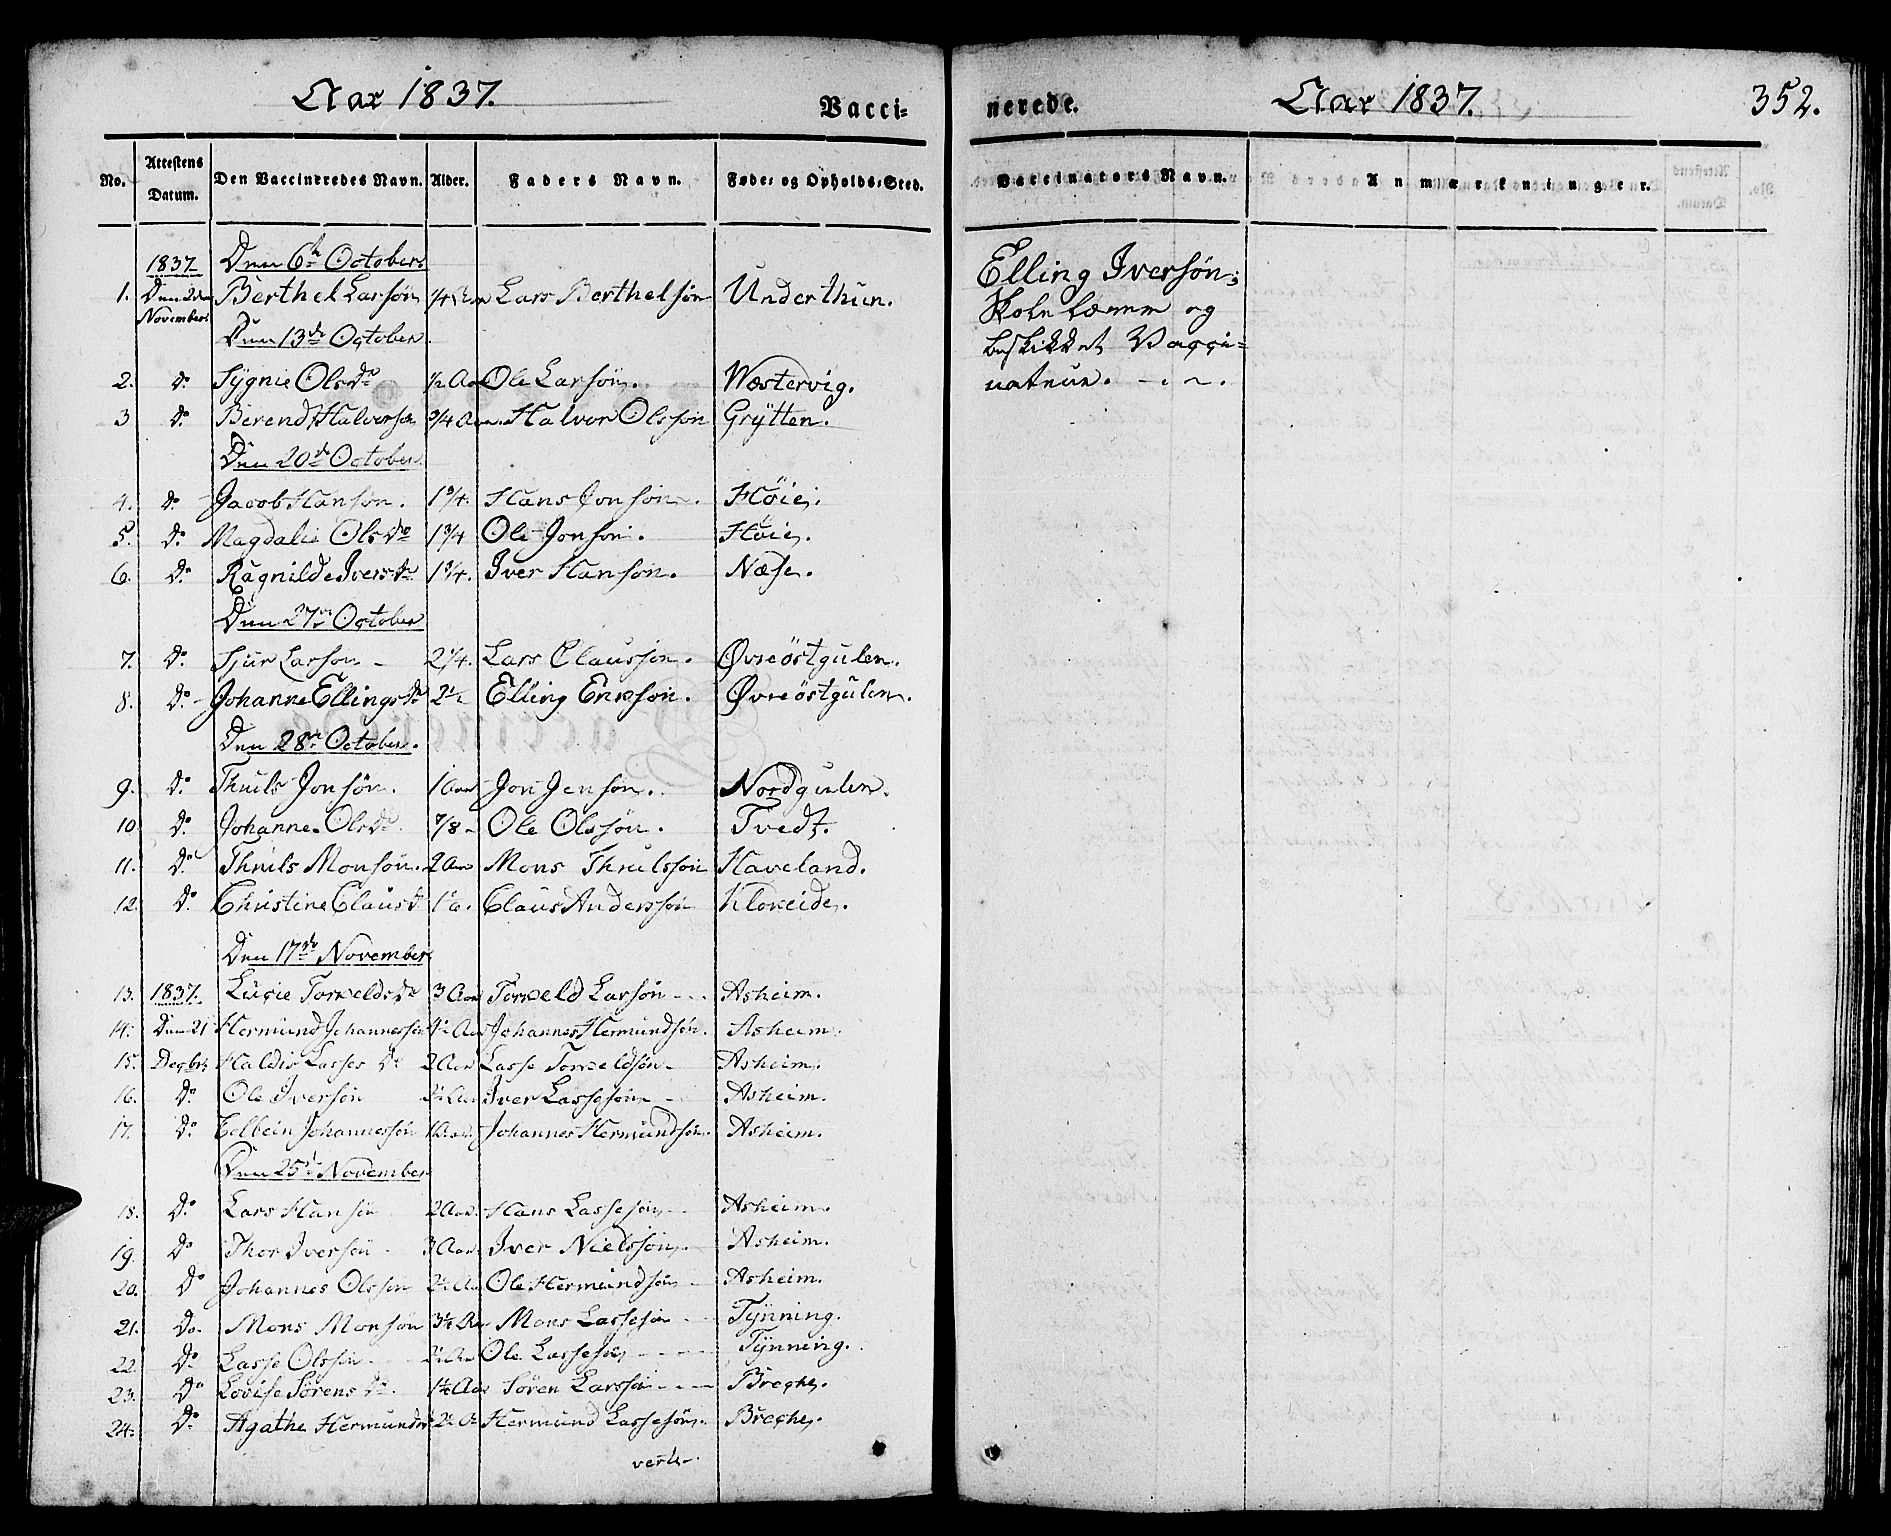 Aar 1837.
Vacci-
No. Attestens Datum. Den Vaccineredes Navn. Alder. Faders Navn. Føde- og Opholds-Sted.
1837 Den 6te October
1. Den 2den November Berthel Larsøn 1/4 Aar Lars Berthelsøn Underthun.
Den 13de October
2. Do Sÿgnie Olsdr 1/2 Aar Ole Larsøn. Wæstervig.
3 Do Berend Halvorsøn 3/4 Aar. Halvor Olsson Grÿtten.
Den 20de October
4. Do Jacob Hansøn. 1 3/4. Hans Jonsøn. Høie.
5. Do Magdalie Olsdr 1 3/4 Ole Jonsøn. Høie.
6. Do Ragnilde Iversdr 1 3/4. Iver Hansøn. Næse.
Den 27de October
7. Do Sjur Larsøn - 2 1/4. Lars Claussøn. Øvreöstgulen.
8. Do Johanne Ellingsdr 2 1/2 Elling Erikson. Øvreöstgulen.
Den 28de October.
9. Do Thuils Jonsøn. 1 Aar Jon Jensøn. Nordgulen.
10 Do Johanne Olsdr. 7/8 Ole Olssøn. Tvedt.
11. Do Thruls Monsøn. 2 Aar Mons Thrulssøn Haveland.
12. Do Christine Clausdr Claus Anderssøn Kloveide.
Den 17de November
13. 1837. Lucie Torkeldsdr 3 Aar Torkeld Larsøn - - Asheim.
14. Den 21 Hermund Johannessøn Johannes Hermundsøn. Asheim.
15. Decbr. Haldis Lasses Dr 2 Aar Lasse Torkeldsøn - Asheim.
16. Do Ole Iversøn 2 1/2 Aar Iver Lassesøn - Asheim.
17. Do Johannessøn 1 Aar. Johannes Hermundsøn. Asheim.
Den 25de November
18. Do Lars Hansøn 2 Aar. Hans Lassesøn - Asheim.
19. Do Thor Iversøn - 3 Aar. Iver Nielssøn. Asheim.
20. Do Johannes Olsson 2 1/2 Aar Ole Hermundsøn - Asheim.
21. Do. Mons Monsøn 3 1/2 Aar Mons Lassesøn - - Tÿnning.
22. Do Lasse Olssøn. 2 1/2 Aar Ole Lassesøn - - - Tÿnning.
23. Do Lovise Sørens Dr. 1 1/2 Aar Søren Larssøn - - - Breche.
24. Do Agathe Hermundsdr 2 Hermund Lassesøn. Breche.
verte.
nerede.
Aar 1837.
352.
Vaccinators Navn. Anmærkninger.
Elling Iversøn;
Skolelærer og
beskikket Vacci-
nateur. - . ~ .